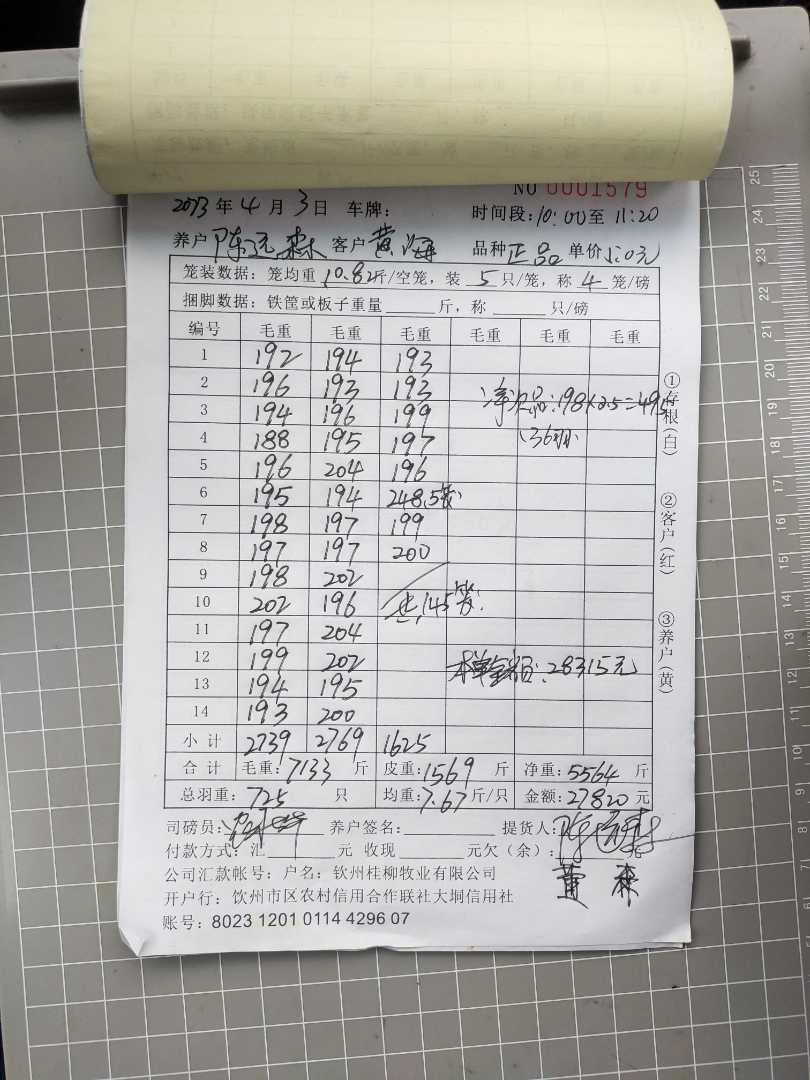 NO 0001579
2023年4月3日 车牌： 时间段：10:00至11:20
养户 陈 森 客户 黄海 品种 正品 单价 5.0元
笼装数据：笼均重 10.82斤/空笼，装 5 只/笼，称 4 笼/磅
捆脚数据：铁筐或板子重量 斤，称 只/磅
编号 毛重 毛重 毛重 毛重 毛重 毛重
1 192 194 193
2 196 193 193
净次品：198×2.5=495
3 194 196 199
4 188 195 197
(36羽)
5 196 204 196
6 195 194 248.5
7 198 197 199
8 197 197 200
9 198 202
10 202 196 145
11 197 204
12 199 202 本单金额：28315元
13 194 195
14 193 200
小计 2739 2769 1625
合计 毛重：7133 斤 皮重：1569 斤 净重：5564 斤
总羽重：725 只 均重：7.67斤/只 金额：27820元
司磅员： 养户签名： 提货人：
付款方式：汇 元 收现 元欠（余）： 元
公司汇款帐号：户名：钦州桂柳牧业有限公司
开户行：钦州市区农村信用合作联社大垌信用社
账号：8023 1201 0114 4296 07
①存根（白）
②客户（红）
③养户（黄）